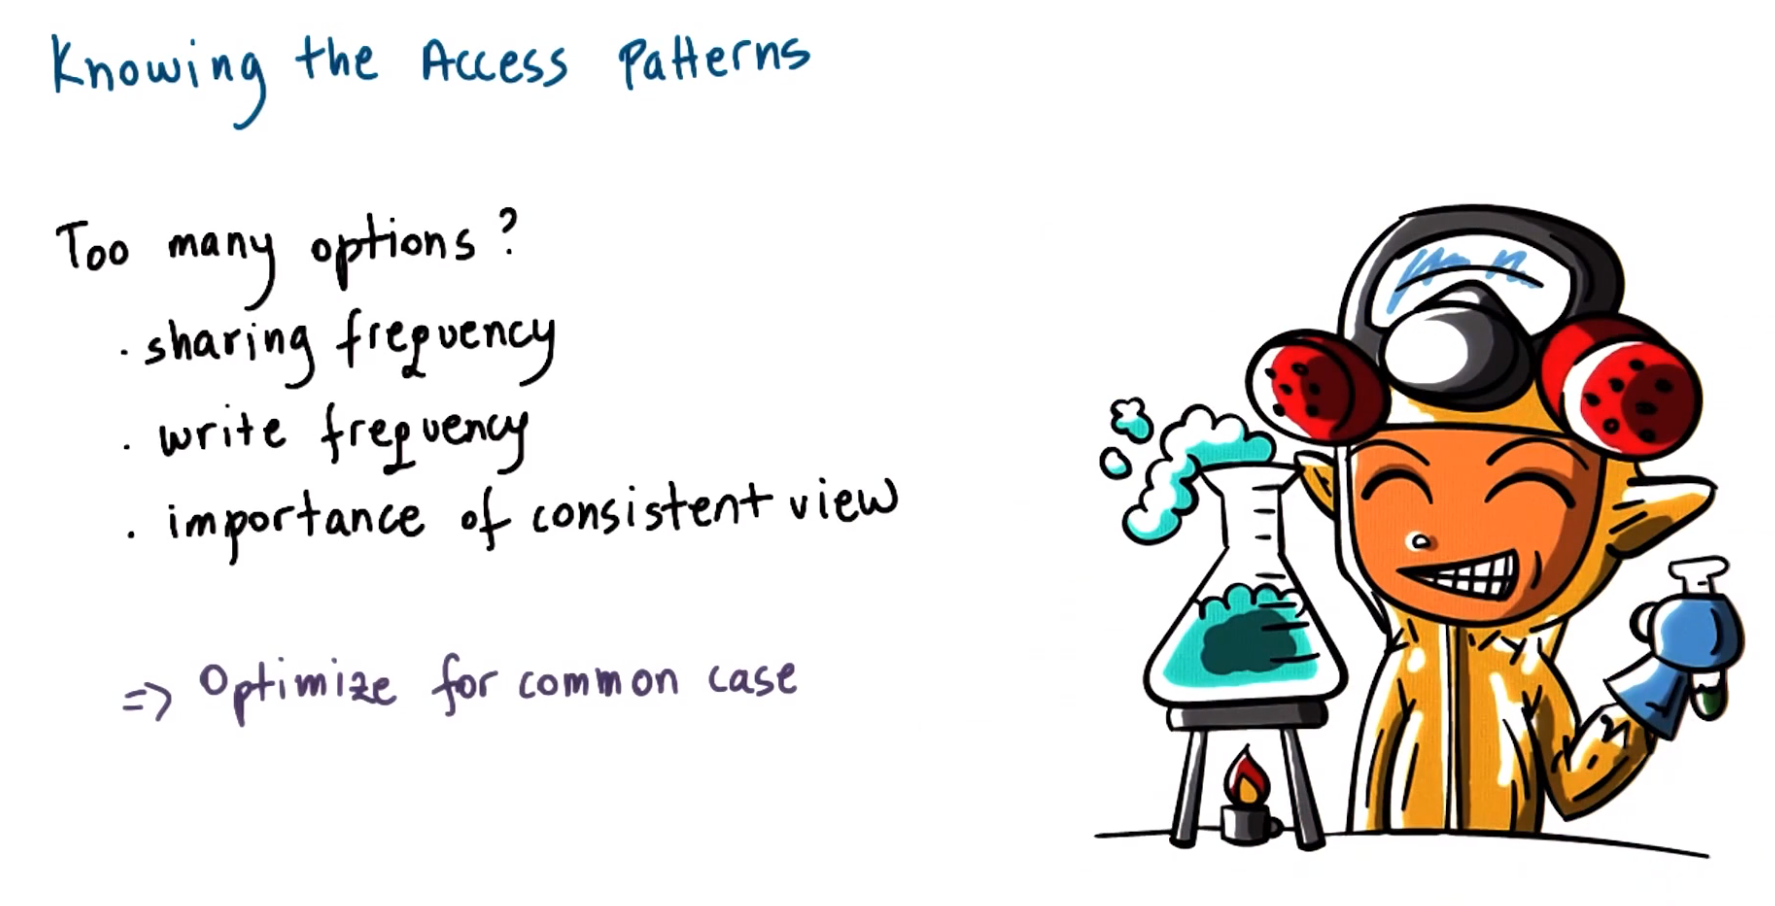 Knowing the Access Patterns
Too many options?
. sharing frequency
. write frequency
. importance of consistent view
=> Optimize for common case